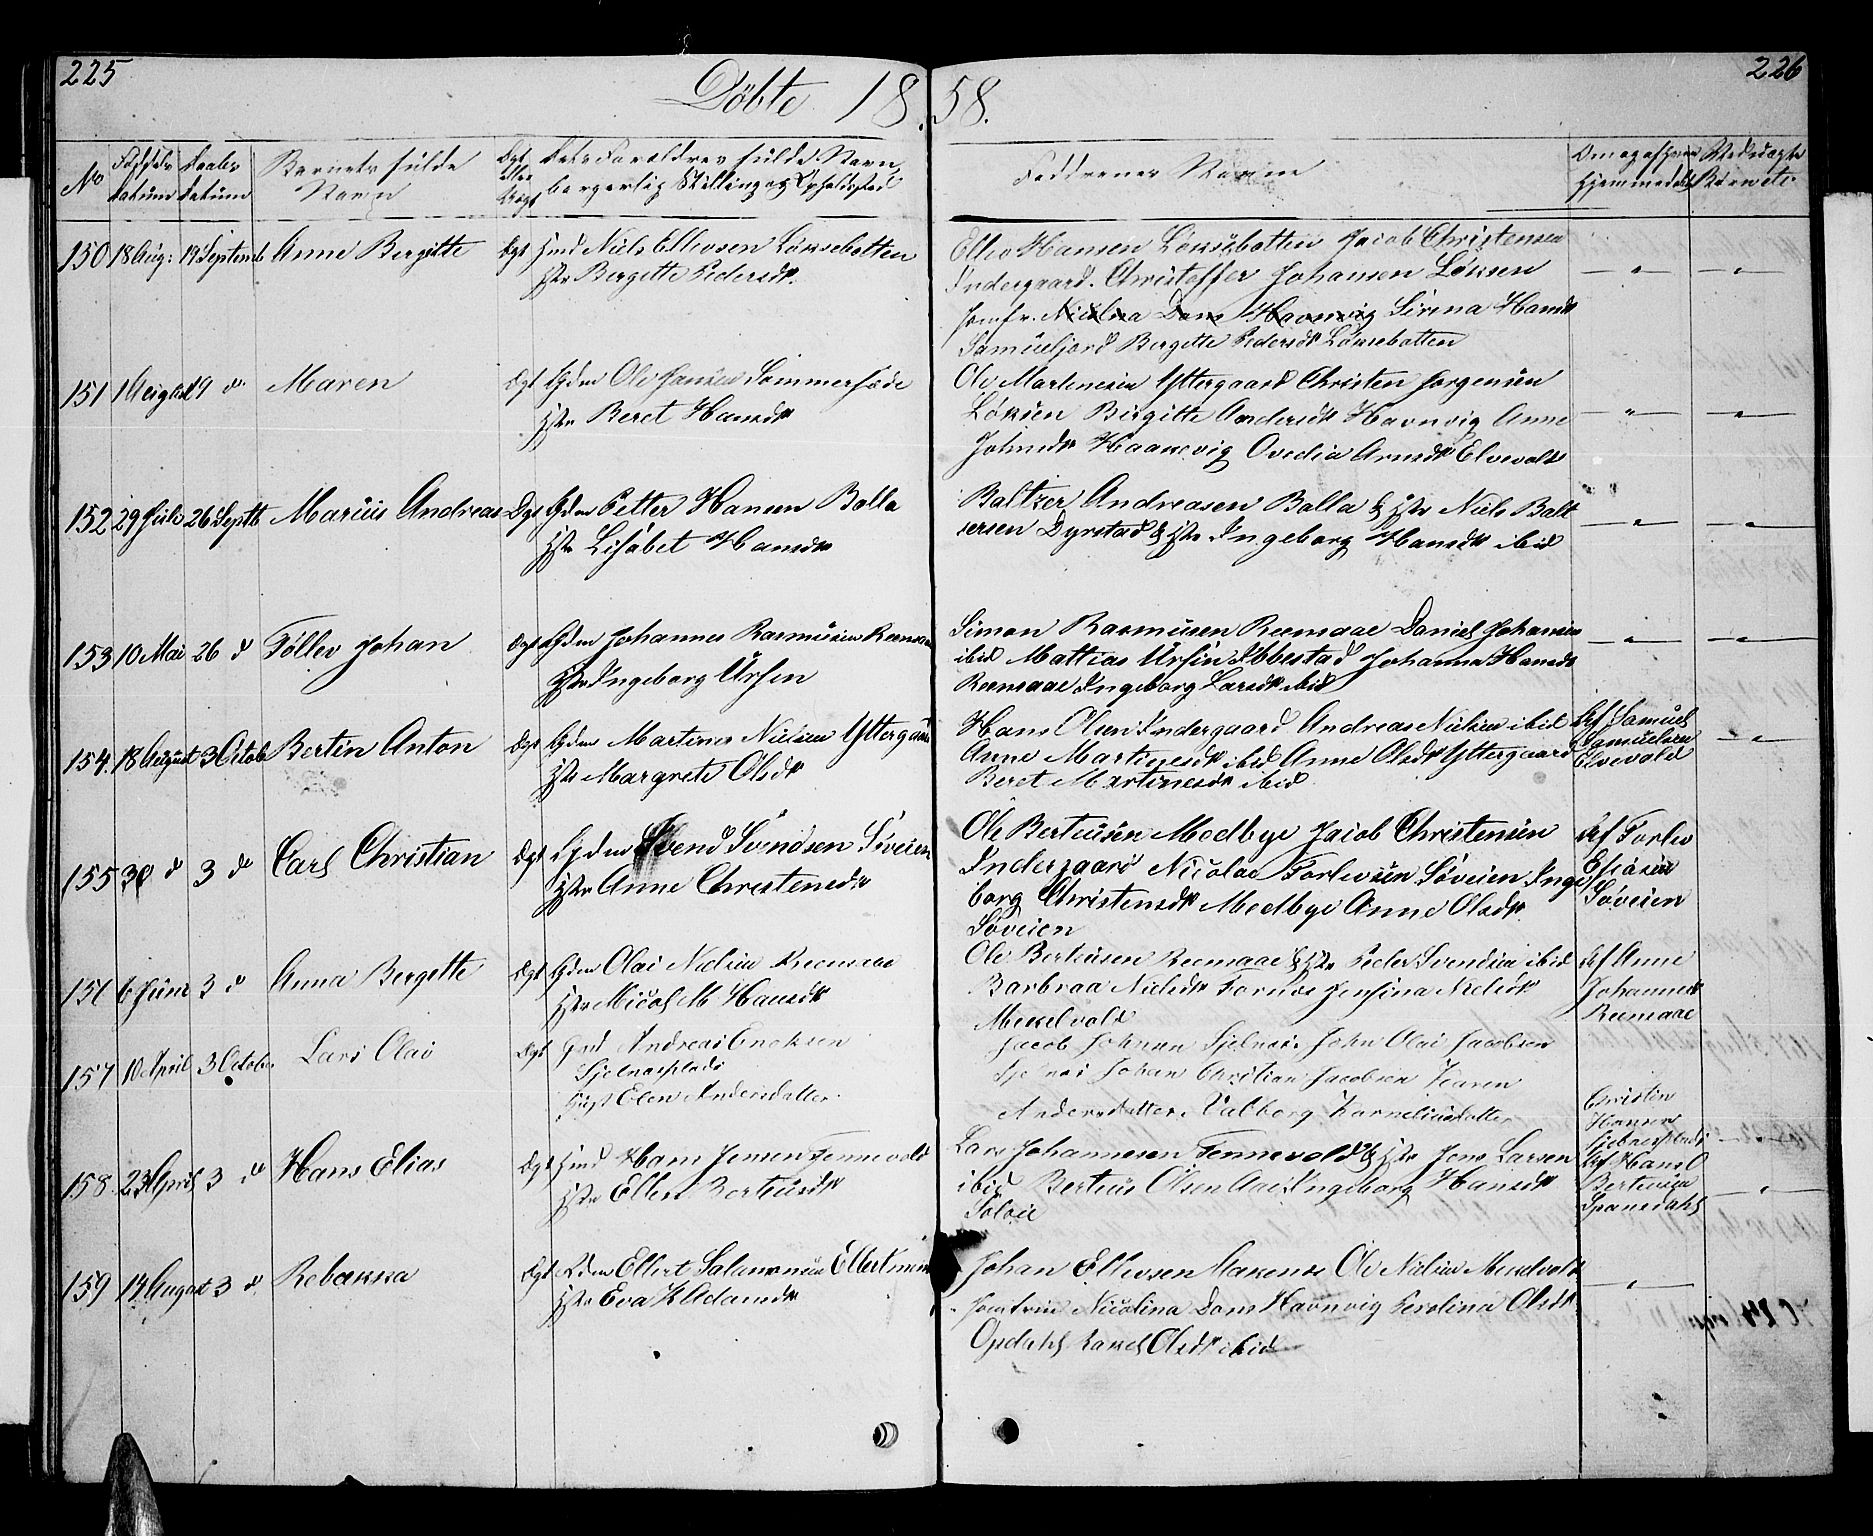 225
226
Døbte 18
58.
No
Fødsels datum
Daabs datum
Barnets fulde Navn
Dets Forældres fulde Navn, borgerlig Stilling og Opholdsted
Faddernes Navn
150 18 Aug: 19 Septemb Anne Bergitte Dgt Hmd Niels Ellevsen Løksebotten
Hstr Bergitte Pedersdtr.
Ellev Hansen Løksebotten Jacob Christensen
Indergaard. Christoffer Johansen Løksen
Jomfr. Nicolina Dons Havnvig Sirena Hansdtr
Samueljord Bergitte Pedersdtr Løksebotten
151 1 August 19 d Maren Dgt Gdm Ole Hansen Sommersæde
Hstr Beret Hansdtr
Ole Martinesen Yttergaard Christen Jorgensen
Løksen Birgitte Andersdtr Havnvig Anne
Johnsdtr Haakevig Ovedia Arnesdtr Elvevold
152 29 Juli 26 Septb Marius Andreas Dgt Gdm Petter Hansen Balla
Hstr Lisabet Hansdtr
Baltzer Andreasen Balla & Hstr Niels Balt
sersen Dyrstad & Hstr Ingeborg Hansdtr ibid
153 10 Mai 26 d Føllev Johan Dgt Gdm Johannes Rasmusen Reemaae
Hstr Ingeborg Ursin
Simon Rasmusen Reemaae Daniel Johansen
ibid Mattias Ursin Ibbestad Johanna Hansdtr
Reemaae Ingeborg Larsdtr ibid
154. 18 August 3 Octob Bertin Anton Dgt Gdm Martines Nielsen Yttergaard
Hstr Margrete Olsdtr
Hans Olsen Indergaard Andreas Nielsen ibid
Anne Martinesdtr ibid Anne Olsdtr Yttergaard
Beret Martinesdtr ibid
Ref Samuel
Samuelsen
Elvevold
155 30 d 3 d Carl Christian Dgt Gdm Svend Svendsen Søveien
Hstr Anne Christensdtr
Ole Berteusen Medbye Jacob Christensen
Indergaard Nicolai Torlevsen Søveien Inge
borg Christensdtr Medbye Anne Olsdtr
Søveien
Ref Torlev
Søveien
156 6 Juni 3 d Anna Bergette Dgt Gdm Olai Nielsen Reemaae
Hstr Micol M Hansdtr
Ole Berteusen Reemaae & Hstr Peder Svendsen ibid
Barbraa Nielsdtr Fornes Jensina Nielsdtr
Meeselvold
Ref Anne
Johannesdtr
Reemaae
157 10 April 3 October Lars Olai Dgt Gmd Andreas Enoksen
Sjelnesplads
Hust Elen Andersdatter.
Jacob Johnsen Sjelnes. John Olai Jacobsen
Sjelnes Johan Christian Jacobsen Karen
Andersdatter. Valborg Korneliusdatter
Christen
Hansen
Sjelnesplads
158. 23 April 3 d Hans Elias Dgt Hmd Hans Jensen Fennevold
Hstr Ellen Berteusdtr
Lars Johannesen Fennevold & Hstr Jens Larsen
ibid Berteus Olsen Ingeborg Hansdtr
Ref Hans O
Berteusen
Spansdahl
159 14 August 3 d. Rebekka Dgt Ellert Salamonsen
Hstr Eva K Adamsdtr
Johan Ellevsen Ole Nielsen
Jomfrue Nicolina Dons Havnvig Perolina Olsdtr
Opdahl Olsdtr ibid